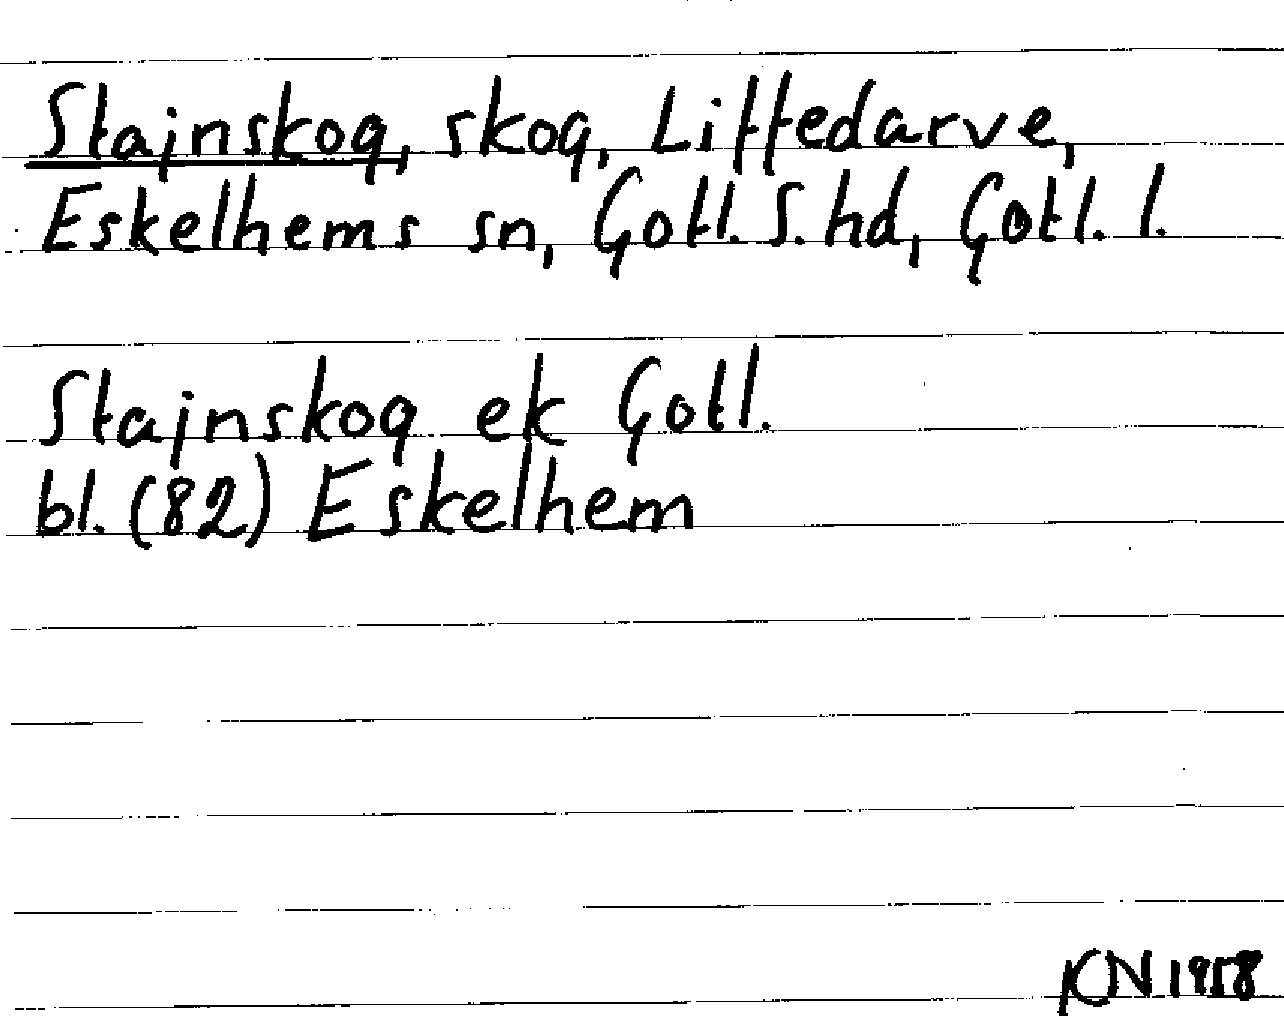 Stajnskog, skog, Liffedarve,
Eskelhems sn, Gotl. S. hd, Gotl. l.
Stajnskog ek Gotl.
bl. (82) Eskelhem
KN 1958